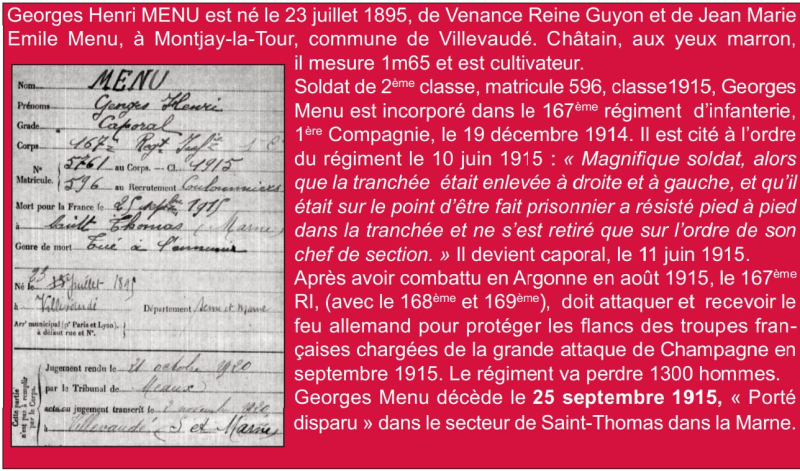 Georges Henri MENU est né le 23 juillet 1895, de Venance Reine Guyon et de Jean Marie
Emile Menu, à Montjay-la-Tour, commune de Villevaudé. Châtain, aux yeux marron,
il mesure 1m65 et est cultivateur.
Soldat de 2ème classe, matricule 596, classe1915, Georges
Menu est incorporé dans le 167ème régiment d'infanterie,
1ère Compagnie, le 19 décembre 1914. Il est cité à l'ordre
du régiment le 10 juin 1915 : « Magnifique soldat, alors
que la tranchée était enlevée à droite et à gauche, et qu'il
était sur le point d'être fait prisonnier a résisté pied à pied
dans la tranchée et ne s'est retiré que sur l'ordre de son
chef de section. » Il devient caporal, le 11 juin 1915.
Après avoir combattu en Argonne en août 1915, le 167ème
RI, (avec le 168ème et 169ème), doit attaquer et recevoir le
feu allemand pour protéger les flancs des troupes fran-
çaises chargées de la grande attaque de Champagne en
septembre 1915. Le régiment va perdre 1300 hommes.
Georges Menu décède le 25 septembre 1915, « Porté
disparu » dans le secteur de Saint-Thomas dans la Marne.
Nom MENU
Prénoms Georges Henri
Grade Caporal
Corps 167e Regt Inf
N° 5761 au Corps. — Cl. 1915
Matricule. 596 au Recrutement Coulommiers
Mort pour la France le 25 septbre 1915
à Thomas (Marne)
Genre de mort Tué à l'ennemi
Né le 23 juillet 1895
à Villevaudé Département Seine et Marne
Arrt municipal (pr Paris et Lyon),
à défaut rue et N°.
Cette partie
n'est pas à remplir
par le Corps.
Jugement rendu le 21 octobre 1920
par le Tribunal de Meaux
acte ou jugement transcrit le 2 novembre 1920
à Villevaudé S et Marne